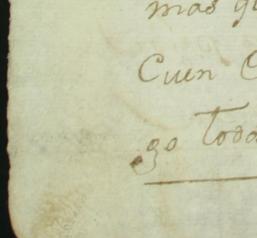 mas qu
Cuen C
go Toda